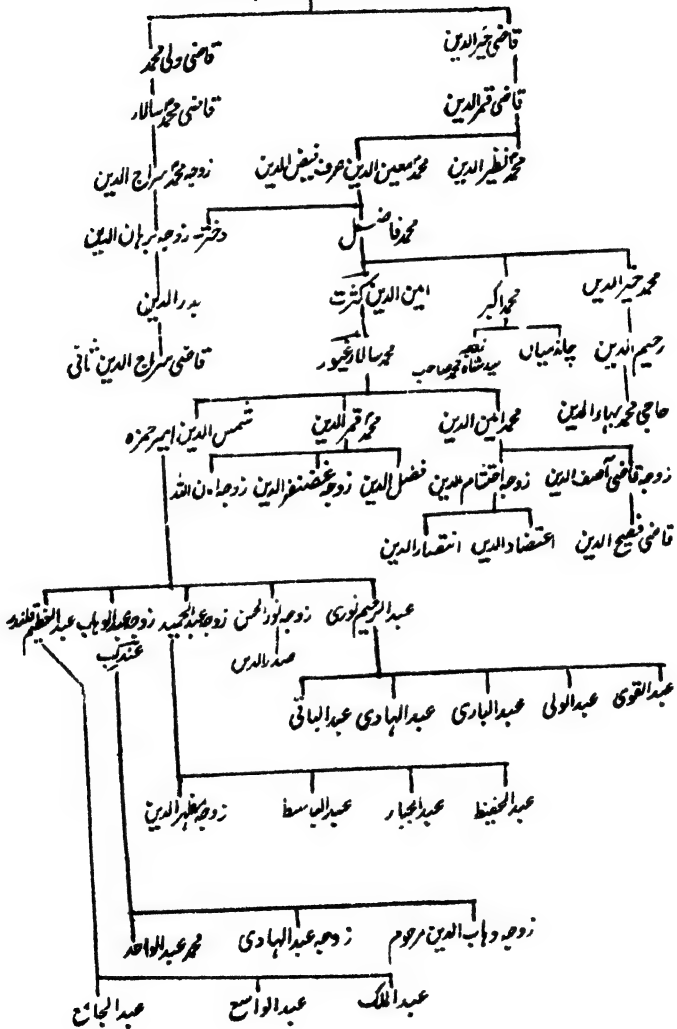 قاضی خیرالدین
قاضی ولی محمد
قاضی قمرالدین
قاضی محمد سالار
محمد نظیرالدین
محمد معین الدین عرف فیض الدین
زوجہ محمد سراج الدین
محمد فاضل
دختر زوجہ برہان الدین
محمد خیرالدین
محمد اکبر
امین الدین کثرت
بدرالدین
رحیم الدین
چاند میاں
زوجہ سید شاہ محمد صاحب
محمد سالار غیور
قاضی سراج الدین ثانی
حاجی محمد بہاءالدین
محمد امین الدین
محمد قمرالدین
شمس الدین امیر حمزہ
زوجہ قاضی آصف الدین
زوجہ احتشام الدین
فضل الدین
زوجہ غضنفرالدین
زوجہ امان اللہ
قاضی فصیح الدین
اعتضادالدین
انتصارالدین
عبدالرحیم نوری
زوجہ نورالحسن
زوجہ عبدالحمید
زوجہ عبدالوہاب عندلیب
عبدالعظیم قلندر
صدرالدین
عبدالقوی
عبدالولی
عبدالباری
عبدالہادی
عبدالباقی
عبدالحفیظ
عبدالجبار
عبدالباسط
زوجہ مظہرالدین
زوجہ وہاب الدین مرحوم
زوجہ عبدالہادی
محمد عبدالواحد
عبدالملک
عبدالواسع
عبدالجامع